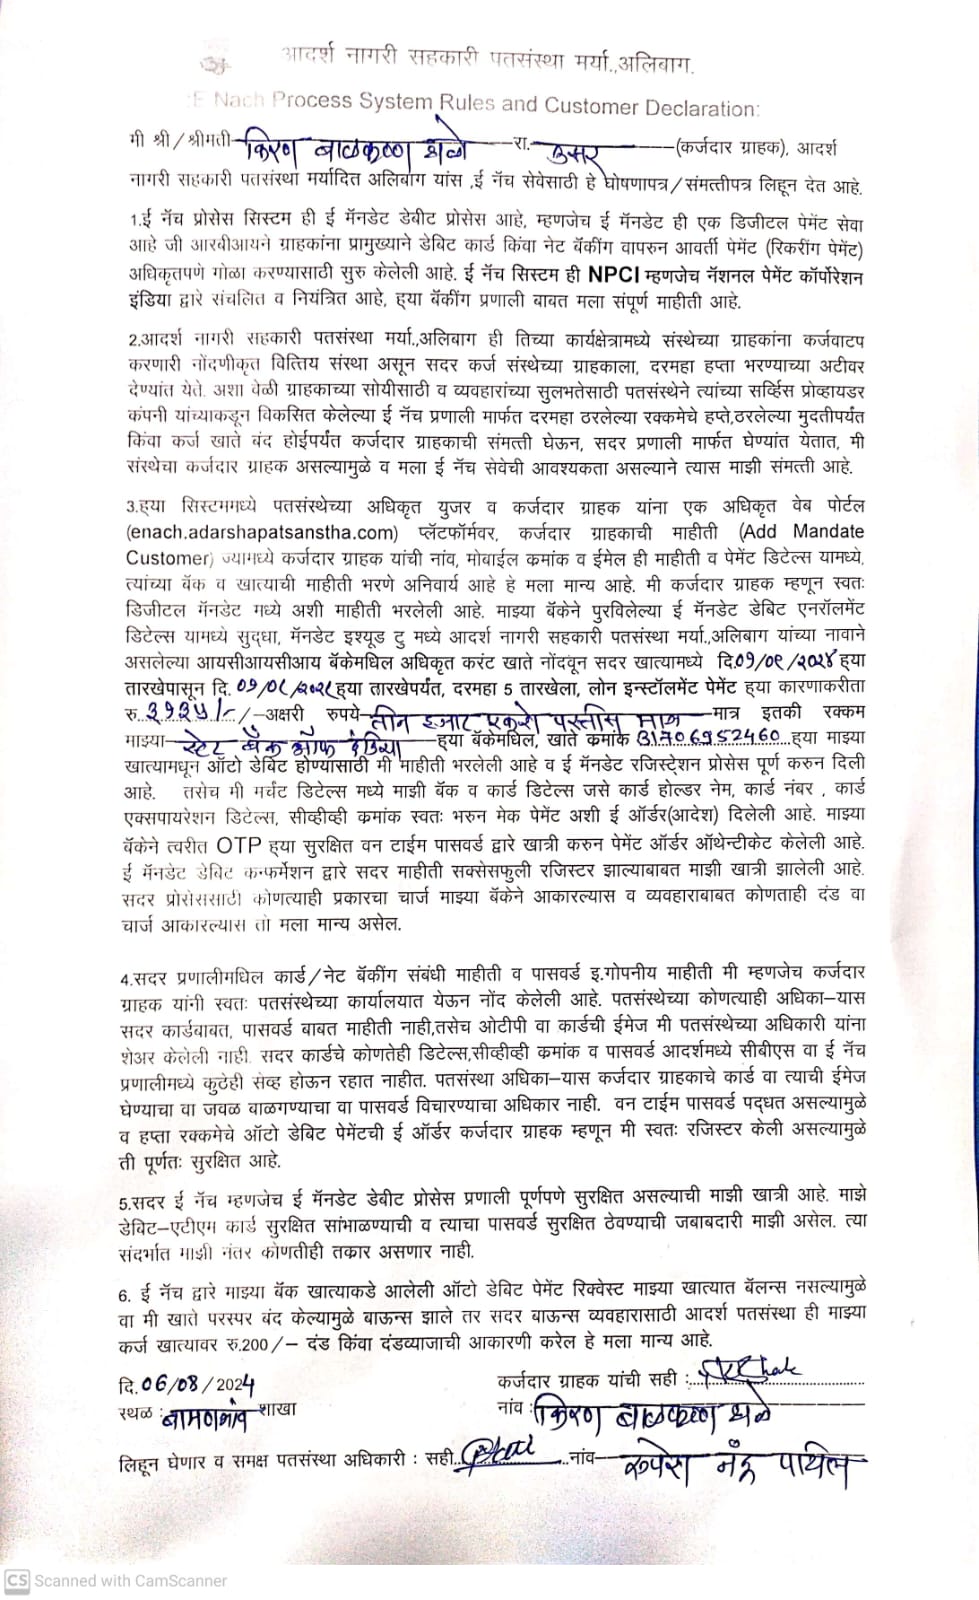 आदर्श नागरी सहकारी पतसंस्था मर्या.,अलिबाग.
:E Nach Process System Rules and Customer Declaration:
मी श्री/श्रीमती किरण बाळकृष्ण थळे रा. उसर (कर्जदार ग्राहक), आदर्श
नागरी सहकारी पतसंस्था मर्यादित अलिबाग यांस ,ई नॅच सेवेसाठी हे घोषणापत्र/संमत्तीपत्र लिहून देत आहे.
1.ई नॅच प्रोसेस सिस्टिम ही ई मॅनडेट डेबीट प्रोसेस आहे, म्हणजेच ई मॅनडेट ही एक डिजीटल पेमेंट सेवा
आहे जी आरबीआयने ग्राहकांना प्रामुख्याने डेबिट कार्ड किंवा नेट बॅकींग वापरुन आवर्ती पेमेंट (रिकरींग पेमेंट)
अधिकृतपणे गोळा करण्यासाठी सुरु केलेली आहे. ई नॅच सिस्टम ही NPCI म्हणजेच नॅशनल पेमेंट कॉर्पोरेशन
इंडिया द्वारे संचलित व नियंत्रित आहे, ह्या बॅकींग प्रणाली बाबत मला संपूर्ण माहीती आहे.
2.आदर्श नागरी सहकारी पतसंस्था मर्या.,अलिबाग ही तिच्या कार्यक्षेत्रामध्ये संस्थेच्या ग्राहकांना कर्जवाटप
करणारी नोंदणीकृत वित्तिय संस्था असून सदर कर्ज संस्थेच्या ग्राहकाला, दरमहा हप्ता भरण्याच्या अटीवर
देण्यांत येते. अशा वेळी ग्राहकाच्या सोयीसाठी व व्यवहारांच्या सुलभतेसाठी पतसंस्थेने त्यांच्या सर्व्हिस प्रोव्हायडर
कंपनी यांच्याकडून विकसित केलेल्या ई नॅच प्रणाली मार्फत दरमहा ठरलेल्या रक्कमेचे हप्ते,ठरलेल्या मुदतीपर्यंत
किंवा कर्ज खाते बंद होईपर्यंत कर्जदार ग्राहकाची संमत्ती घेऊन, सदर प्रणाली मार्फत घेण्यांत येतात, मी
संस्थेचा कर्जदार ग्राहक असल्यामुळे व मला ई नॅच सेवेची आवश्यकता असल्याने त्यास माझी संमत्ती आहे.
3.ह्या सिस्टममध्ये पतसंस्थेच्या अधिकृत युजर व कर्जदार ग्राहक यांना एक अधिकृत वेब पोर्टल
(enach.adarshapatsanstha.com) प्लॅटफॉर्मवर, कर्जदार ग्राहकाची माहीती (Add Mandate
Customer) ज्यामध्ये कर्जदार ग्राहक यांची नांव, मोबाईल क्रमांक व ईमेल ही माहीती व पेमेंट डिटेल्स यामध्ये,
त्यांच्या बॅक व खात्याची माहीती भरणे अनिवार्य आहे हे मला मान्य आहे. मी कर्जदार ग्राहक म्हणून स्वतः
डिजीटल मॅनडेट मध्ये अशी माहीती भरलेली आहे. माझ्या बॅकेने पुरविलेल्या ई मॅनडेट डेबिट एनरॉलमेंट
डिटेल्स यामध्ये सुद्धा, मॅनडेट इश्यूड टु मध्ये आदर्श नागरी सहकारी पतसंस्था मर्या.,अलिबाग यांच्या नावाने
असलेल्या आयसीआयसीआय बॅकेमधिल अधिकृत करंट खाते नोंदवून सदर खात्यामध्ये दि.०१/०९/२०२४ ह्या
तारखेपासून दि. ह्या तारखेपर्यंत, दरमहा 5 तारखेला, लोन इन्स्टॉलमेंट पेमेंट ह्या कारणाकरीता
रु.३१३५/-/-अक्षरी रुपये-तीन हजार एकशे पस्तीस मात्र मात्र इतकी रक्कम
माझ्या स्टेट बँक ऑफ इंडिया ह्या बॅकेमधिल, खाते क्रमांक 31706952460 ह्या माझ्या
खात्यामधून ऑटो डेबिट होण्यासाठी मी माहीती भरलेली आहे व ई मॅनडेट रजिस्ट्रेशन प्रोसेस पूर्ण करुन दिली
आहे. तसेच मी मर्चंट डिटेल्स मध्ये माझी बॅक व कार्ड डिटेल्स जसे कार्ड होल्डर नेम, कार्ड नंबर , कार्ड
एक्सपायरेशन डिटेल्स, सीव्हीव्ही क्रमांक स्वतः भरुन मेक पेमेंट अशी ई ऑर्डर(आदेश) दिलेली आहे. माझ्या
बॅकेने त्वरीत OTP ह्या सुरक्षित वन टाईम पासवर्ड द्वारे खात्री करुन पेमेंट ऑर्डर ऑथेन्टीकेट केलेली आहे.
ई मॅनडेट डेबिट कन्फर्मेशन द्वारे सदर माहीती सक्सेसफुली रजिस्टर झाल्याबाबत माझी खात्री झालेली आहे.
सदर प्रोसेससाठी कोणत्याही प्रकारचा चार्ज माझ्या बॅकेने आकारल्यास व व्यवहाराबाबत कोणताही दंड वा
चार्ज आकारल्यास तो मला मान्य असेल.
4.सदर प्रणालीमधिल कार्ड/नेट बॅकींग संबंधी माहीती व पासवर्ड इ.गोपनीय माहीती मी म्हणजेच कर्जदार
ग्राहक यांनी स्वतः पतसंस्थेच्या कार्यालयात येऊन नोंद केलेली आहे. पतसंस्थेच्या कोणत्याही अधिका-यास
सदर कार्डबाबत, पासवर्ड बाबत माहीती नाही,तसेच ओटीपी वा कार्डची ईमेज मी पतसंस्थेच्या अधिकारी यांना
शेअर केलेली नाही. सदर कार्डचे कोणतेही डिटेल्स,सीव्हीव्ही क्रमांक व पासवर्ड आदर्शमध्ये सीबीएस वा ई नॅच
प्रणालीमध्ये कुठेही सेव्ह होऊन रहात नाहीत. पतसंस्था अधिका-यास कर्जदार ग्राहकाचे कार्ड वा त्याची ईमेज
घेण्याचा वा जवळ बाळगण्याचा वा पासवर्ड विचारण्याचा अधिकार नाही. वन टाईम पासवर्ड पद्धत असल्यामुळे
व हप्ता रक्कमेचे ऑटो डेबिट पेमेंटची ई ऑर्डर कर्जदार ग्राहक म्हणून मी स्वतः रजिस्टर केली असल्यामुळे
ती पूर्णतः सुरक्षित आहे.
5.सदर ई नॅच म्हणजेच ई मॅनडेट डेबीट प्रोसेस प्रणाली पूर्णपणे सुरक्षित असल्याची माझी खात्री आहे. माझे
डेबिट-एटीएम कार्ड सुरक्षित सांभाळण्याची व त्याचा पासवर्ड सुरक्षित ठेवण्याची जबाबदारी माझी असेल. त्या
संदर्भात माझी नंतर कोणतीही तक्रार असणार नाही.
6. ई नॅच द्वारे माझ्या बॅक खात्याकडे आलेली ऑटो डेबिट पेमेंट रिक्वेस्ट माझ्या खात्यात बॅलन्स नसल्यामुळे
वा मी खाते परस्पर बंद केल्यामुळे बाऊन्स झाले तर सदर बाऊन्स व्यवहारासाठी आदर्श पतसंस्था ही माझ्या
कर्ज खात्यावर रु.200/- दंड किंवा दंडव्याजाची आकारणी करेल हे मला मान्य आहे.
दि.06/08/2024 कर्जदार ग्राहक यांची सही :
स्थळ : बामणगांव शाखा नांव : किरण बाळकृष्ण थळे
लिहून घेणार व समक्ष पतसंस्था अधिकारी : सही नांव- रुपेश नंदू पाटील
CS Scanned with CamScanner